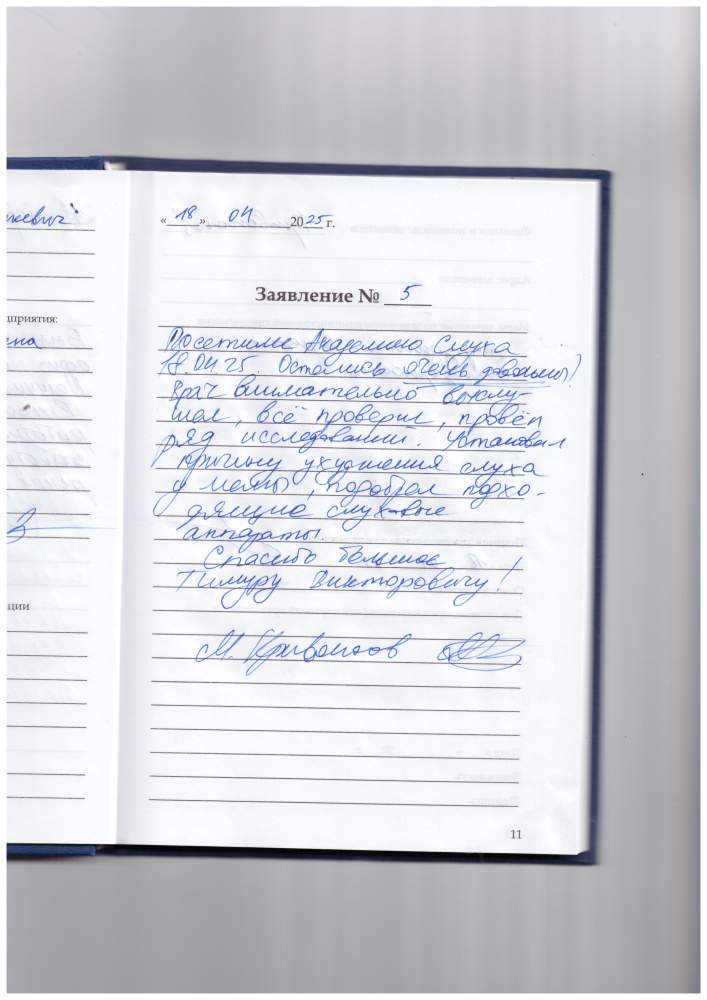 кевич"
дприятия:
ции
«18» 04 2025 г.
Заявление № 5
Посетили Академию Слуха
18.04 25. Остались очень довольны!
Врач внимательно выслу-
шал, всё проверил, провёл
ряд исследований. Установил
причину ухудшения слуха
у мамы, подобрал подхо-
дящие слуховые
аппараты.
Спасибо большое
Тимуру Викторовичу!
М. Кривоносов
11